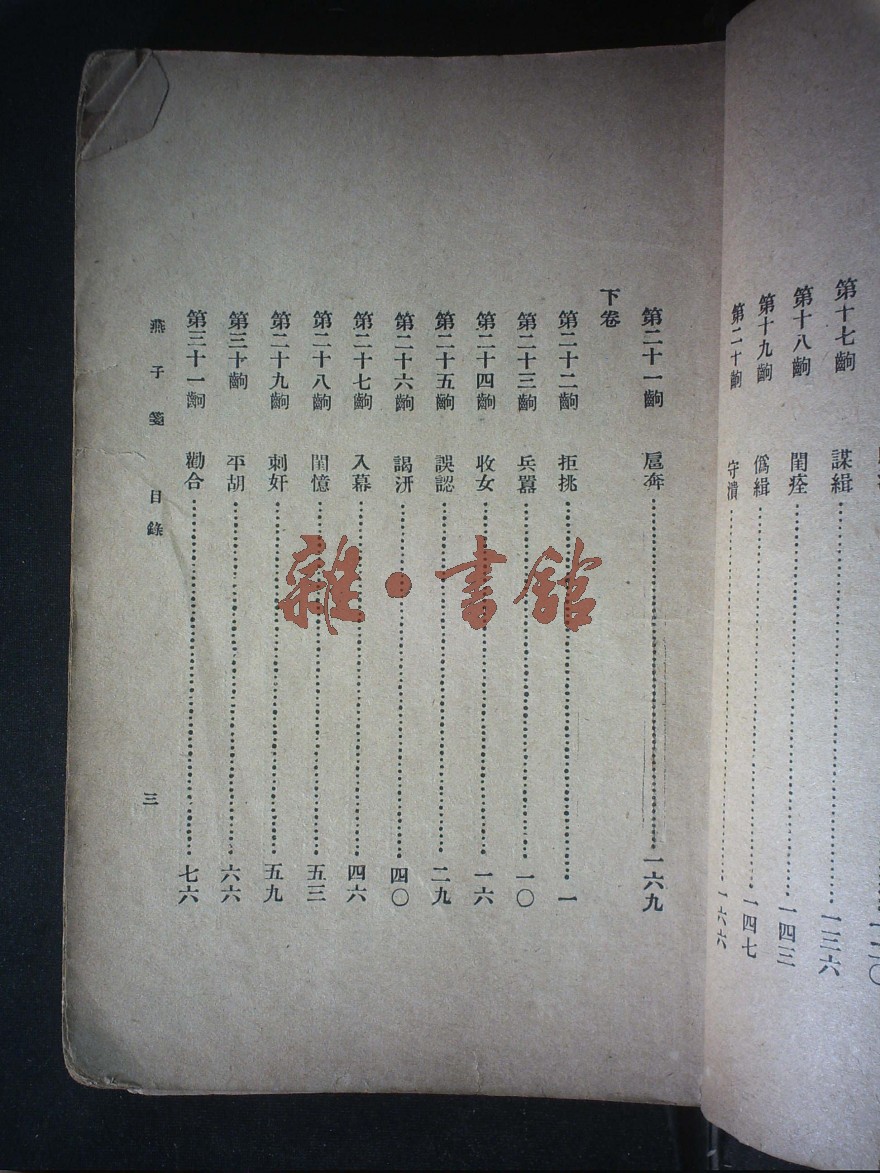 第十七齣 謀緝……一三六
第十八齣 閨痊……一四三
第十九齣 僞緝……一四七
第二十齣 守潰……一六六
第二十一齣 扈奔……一六九
下卷
第二十二齣 拒挑……一
第二十三齣 兵囂……一〇
第二十四齣 收女……一六
第二十五齣 誤認……二九
第二十六齣 謁汧……四〇
第二十七齣 入幕……四六
第二十八齣 閨憶……五三
第二十九齣 刺奸……五九
第三十齣 平胡……六六
第三十一齣 勸合……七六
燕子箋 目錄 三
雜·書館